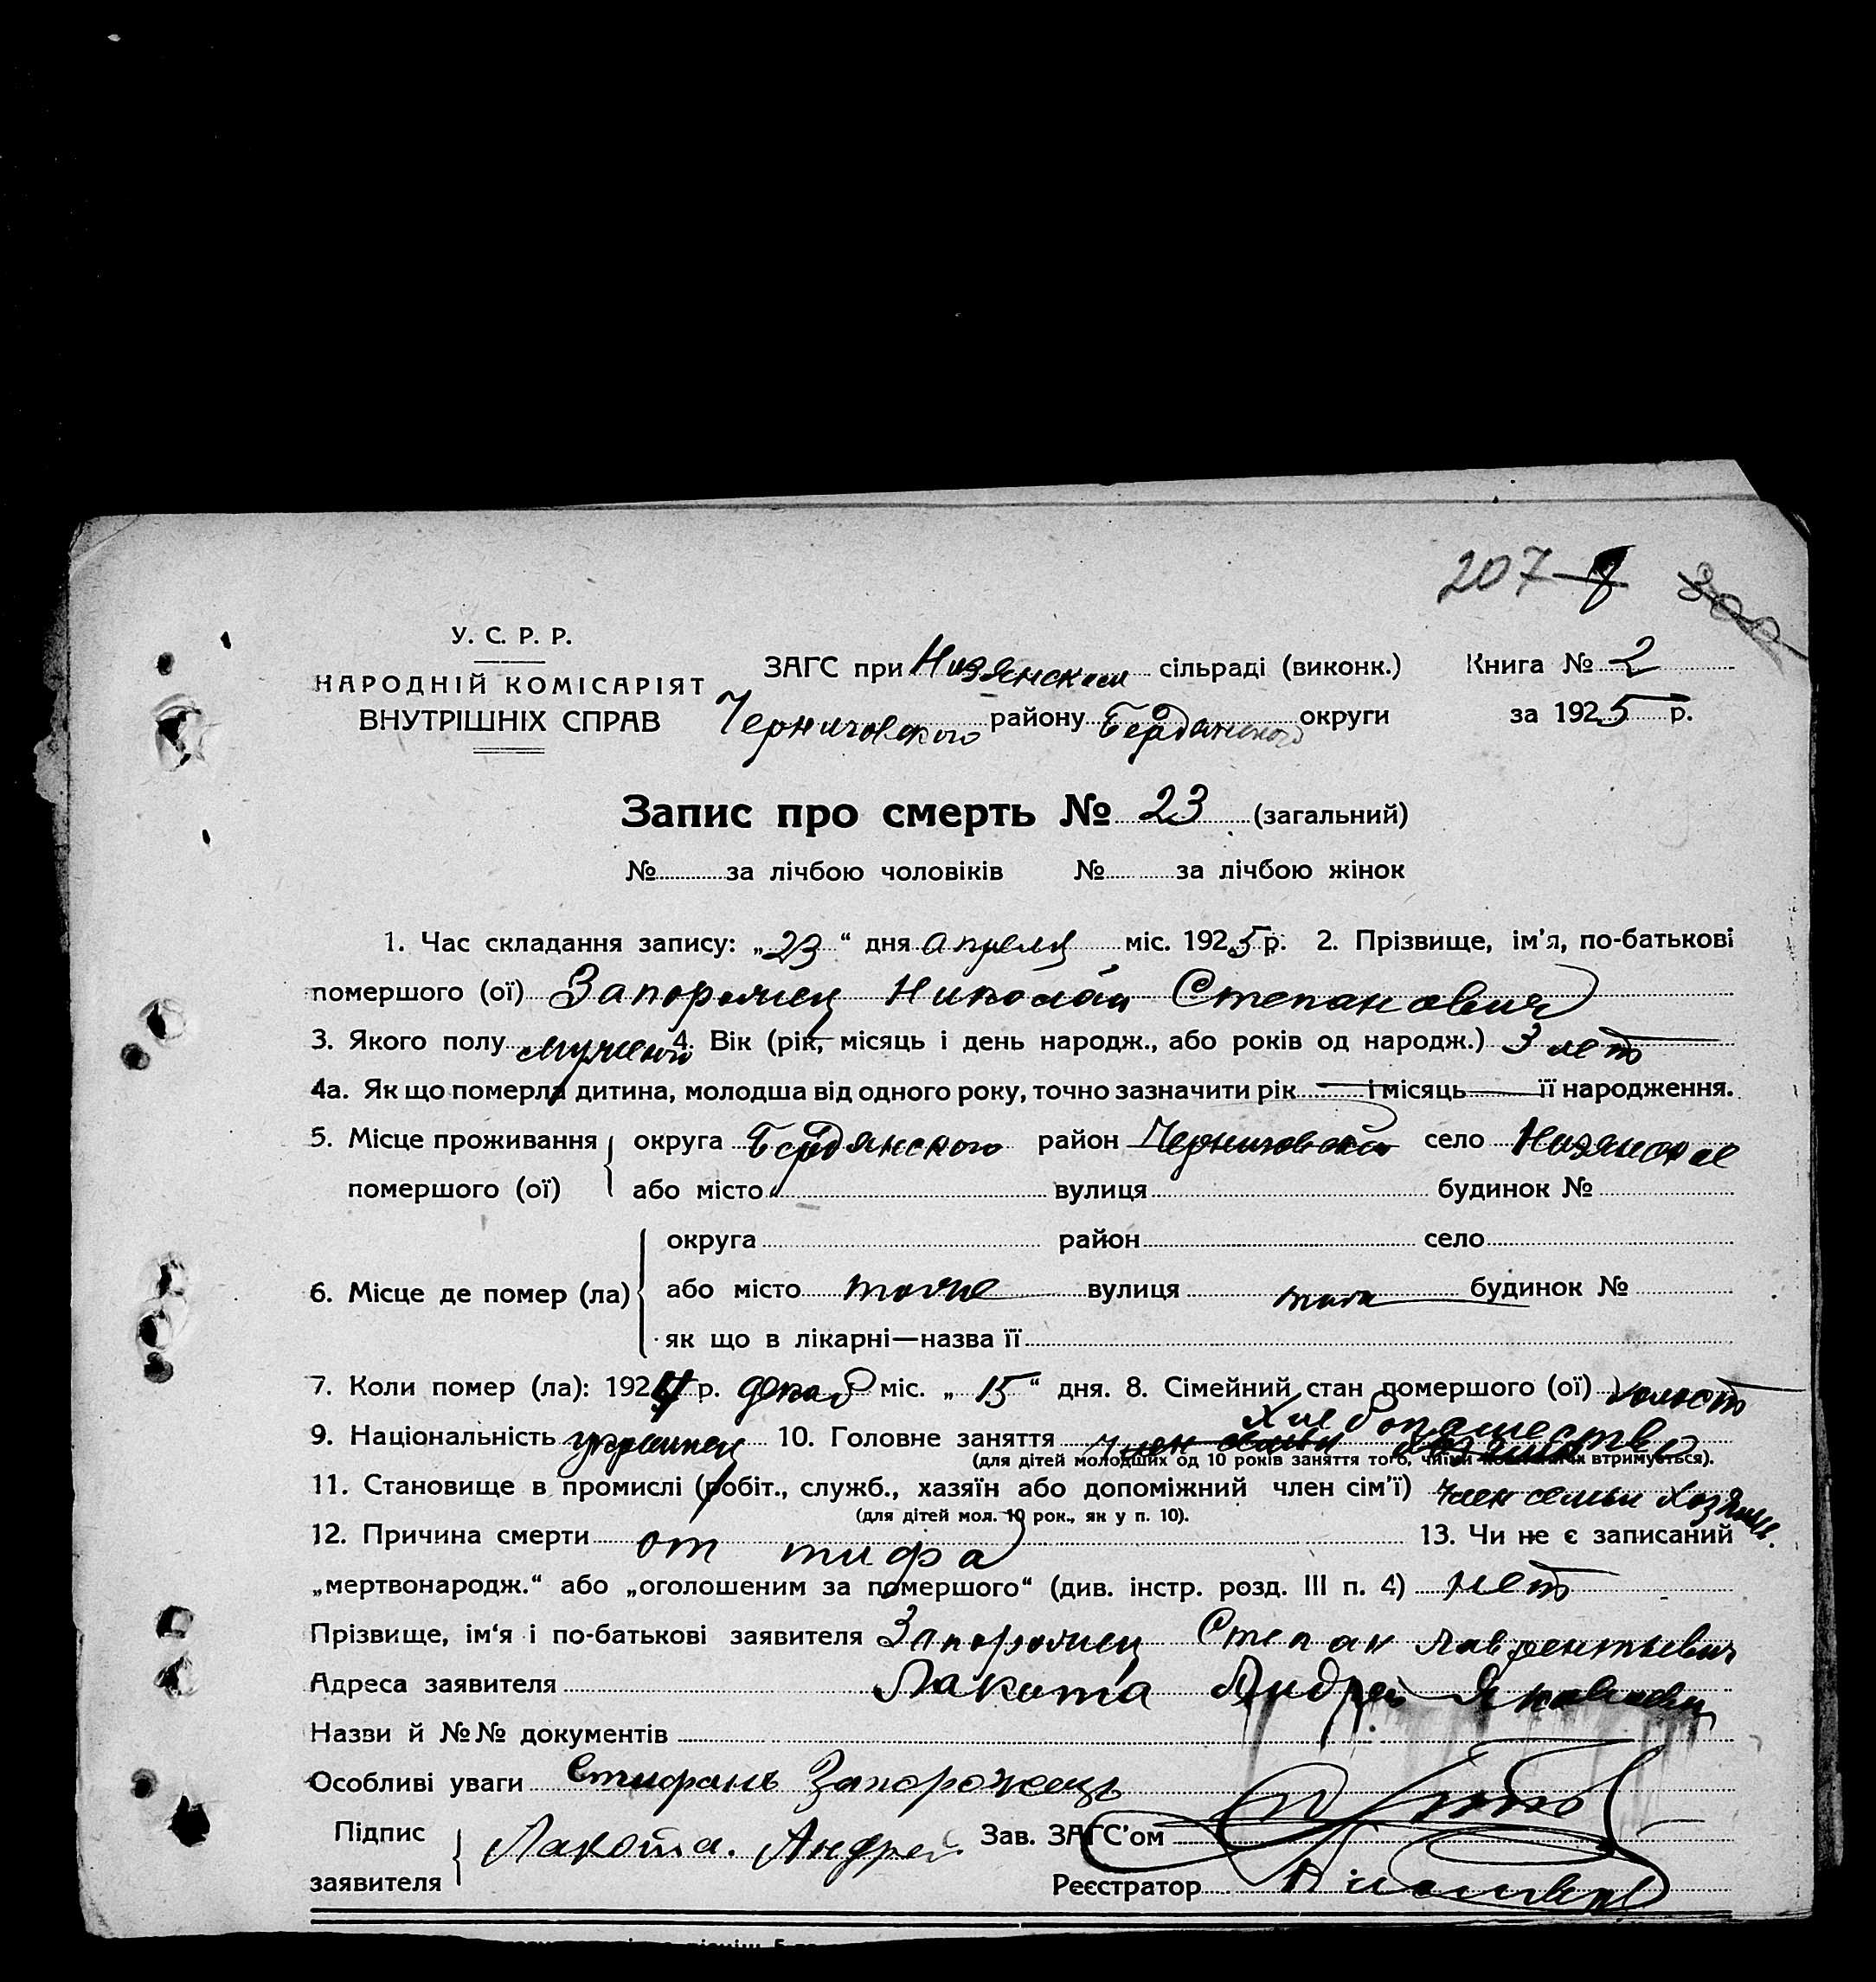 207
У. С. Р. Р.
НАРОДНІЙ КОМІСАРІЯТ
ВНУТРІШНІХ СПРАВ
ЗАГС при Низянском сільраді (виконк.) Книга № 2
Черниговского району Бердянского округи за 1925 р.
Запис про смерть № 23 (загальний)
№ за лічбою чоловіків № за лічбою жінок
1. Час складання запису: „23“ дня апреля міс. 1925 р. 2. Прізвище, ім’я, по-батькові
помершого (ої) Запорожец Николай Степанович
3. Якого полу мужского 4. Вік (рік, місяць і день народж., або років од народж.) 3 лет
4а. Як що померла дитина, молодша від одного року, точно зазначити рік — і місяць — її народження.
5. Місце проживання округа Бердянского район Черниговский село Низяное
помершого (ої) або місто вулиця будинок №
округа район село
6. Місце де помер (ла) або місто тоже вулиця будинок №
як що в лікарні—назва її
7. Коли помер (ла): 1924 р. декаб міс. „15“ дня. 8. Сімейний стан помершого (ої) холост
9. Національність украинец 10. Головне заняття член семьи хлебопашество
(для дітей молодших од 10 років заняття того, чиїми коштами їх втримується).
11. Становище в промислі (робіт., служб., хазяїн або допоміжний член сім’ї) член семьи хозяин.
(для дітей мол. 10 рок., як у п. 10).
12. Причина смерти от тифа 13. Чи не є записаний
„мертвонародж.“ або „оголошеним за помершого“ (див. інстр. розд. III п. 4) нет
Прізвище, ім‘я і по-батькові заявителя Запорожец Степан Лаврентьевич
Адреса заявителя Лакота Андрей Яковлевич
Назви й №№ документів
Особливі уваги Стифанъ Запорожець
Підпис
заявителя Лакота. Андрей Зав. ЗАГС’ом
Реєстратор